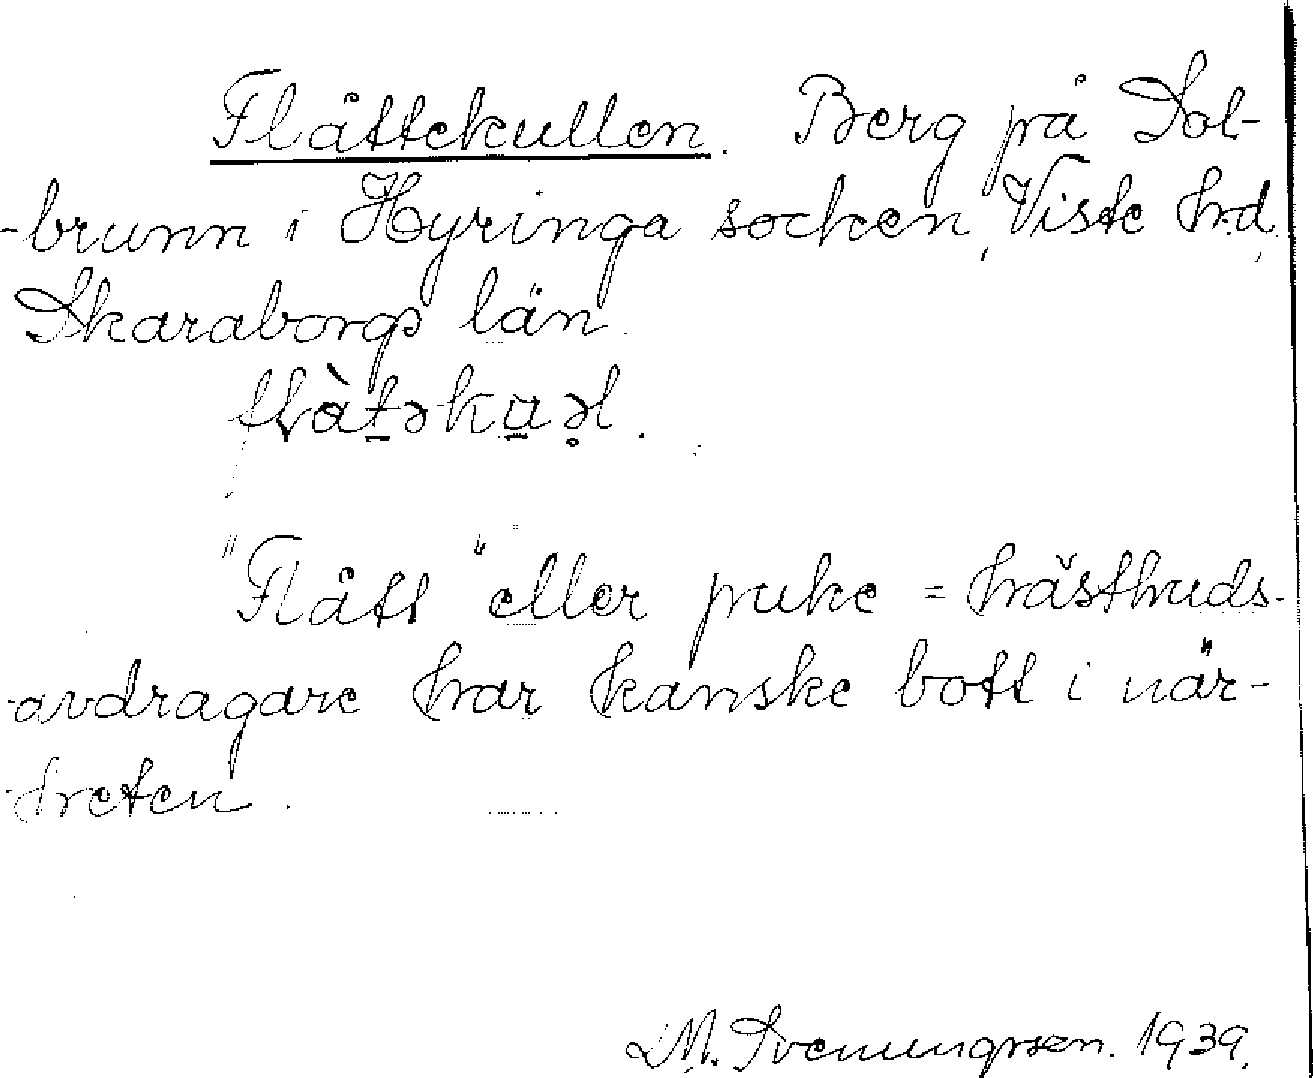 Flåttekullen. Berg på Sol-
-brunn i Hyringa socken, Viste hrd,
Skaraborgs län.
"Flått" eller puke = hästhuds-
-avdragare har kanske bott i när-
-heten.
M. Svenungsson. 1939.